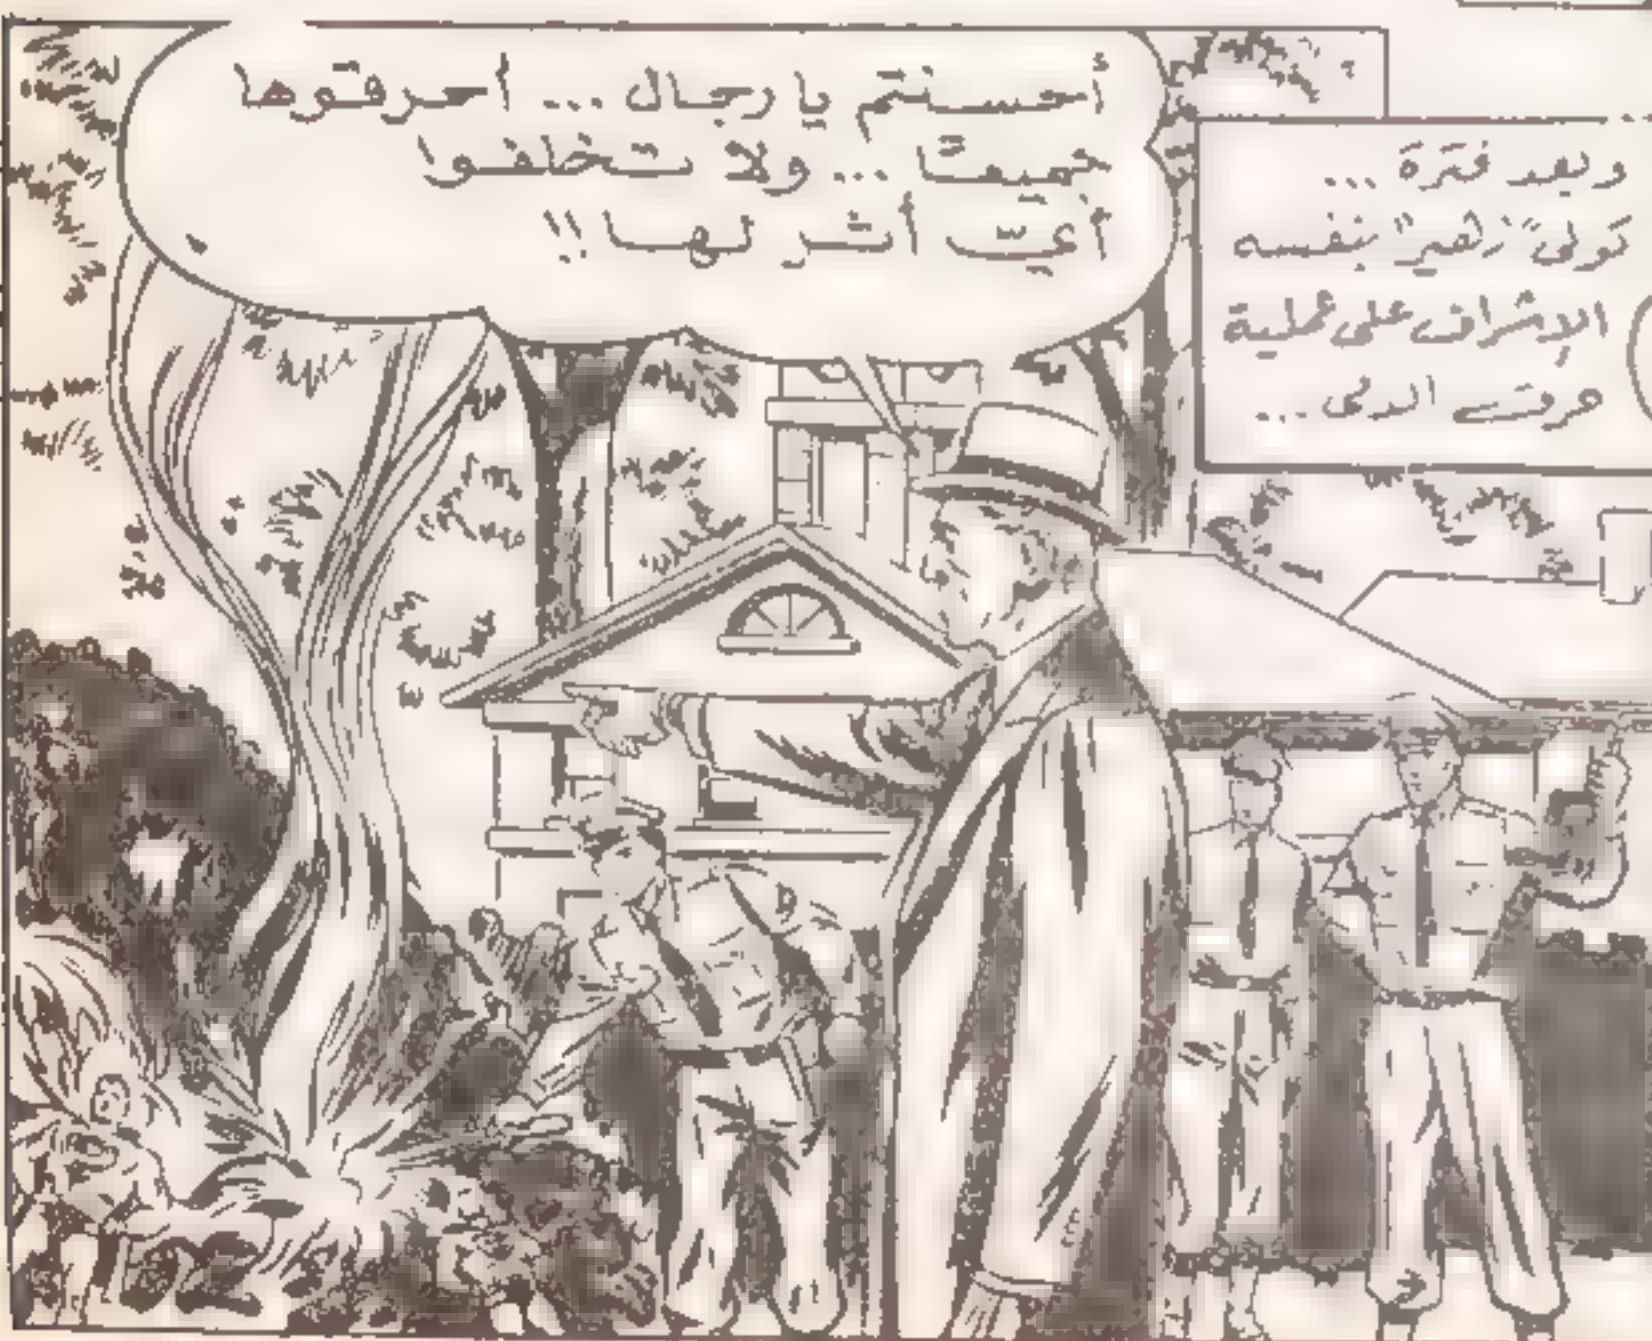 وبعد فترة ...
تولى "زهير" بنفسه
الإشراف على عملية
حرق الدمى ...
أحسنتم يا رجال ... احرقوها
جميعًا ... ولا تخلفوا
أيّ أثر لها !!